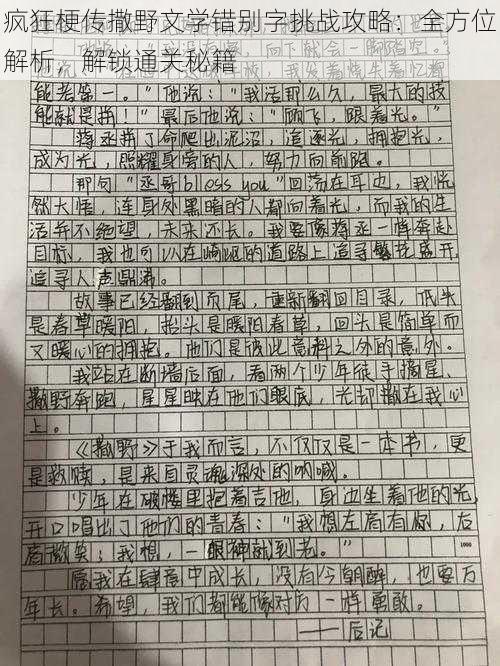 疯狂梗传撒野文学错别字挑战攻略：全方位
解析，解锁通关秘籍
能考第一。"他说："我活那么久，最大的技
能就是拼！"最后他说："顾飞，跟着光。"
蒋丞拼了命爬出泥沼，追逐光，拥抱光，
成为光，照耀身旁的人，努力向前跑。
那句"丞哥bless you"回荡在耳边，我恍
然大悟，连身处黑暗的人都向着光，而我的生
活并不绝望，未来还长。我要像蒋丞一样奔赴
目标，我也可以在崎岖的道路上追寻繁花盛开，
追寻人声鼎沸。
故事已经翻到页尾，重新翻回目录，低头
是春草暖阳，抬头是暖阳春草，回头是简单而
又暖心的拥抱。他们是彼此意料之外的意外。
我站在断墙后面，看两个少年徒手摘星、
撒野奔跑，星星映在他们眼底，光却撒在我心
上。
《撒野》于我而言，不仅仅是一本书，更
是救赎，是来自灵魂深处的呐喊。
少年在破楼里抱着吉他，身边生着他的光，
开口唱出了他们的青春："我想左肩有你，右
肩微笑；我想，一眼神就到老。"
1000
愿我在肆意中成长，没有今朝醉，也要万
年长。希望，我们都能像对方一样勇敢。
——后记